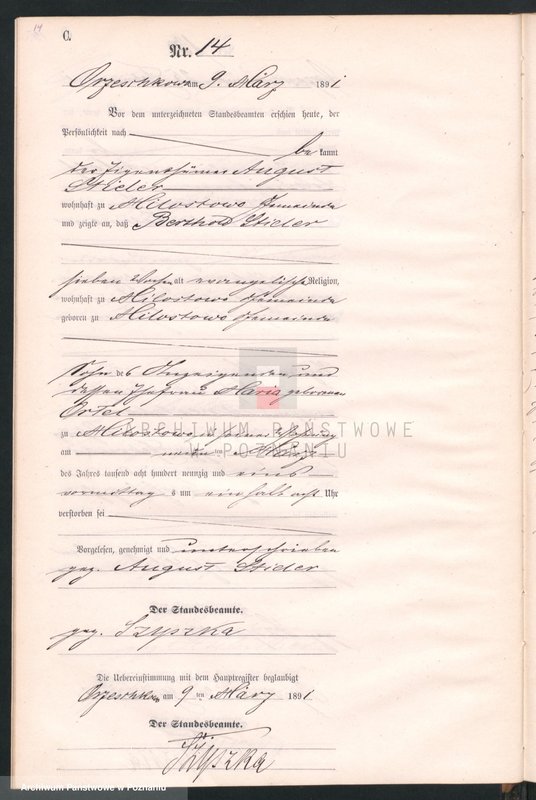 14
C.
Nr. 14
Orzeschkowo am 9. März 1891
Vor dem unterzeichneten Standesbeamten erschien heute, der
Persönlichkeit nach
be kannt
der Eigenthümer August
Stieler
wohnhaft zu Milostowo Gemeinde
und zeigte an, daß Berthold Stieler
sieben Wochen alt evangelische Religion,
wohnhaft zu Milostowo Gemeinde
geboren zu Milostowo Gemeinde
Sohn des Anzeigenden und
dessen Ehefrau Maria geborenen
Ertel
zu Milostowo in seiner Wohnung
am neunten März
des Jahres tausend acht hundert neunzig und eins
vormittag s um ein halb acht Uhr
verstorben sei
Vorgelesen, genehmigt und unterschrieben
gez. August Stieler
Der Standesbeamte.
gez. Szyszka
Die Uebereinstimmung mit dem Hauptregister beglaubigt
Orzeschkowo am 9 ten März 1891.
Der Standesbeamte.
Szyszka
ARCHIWUM PAŃSTWOWE
W POZNANIU
Archiwum Państwowe w Poznaniu